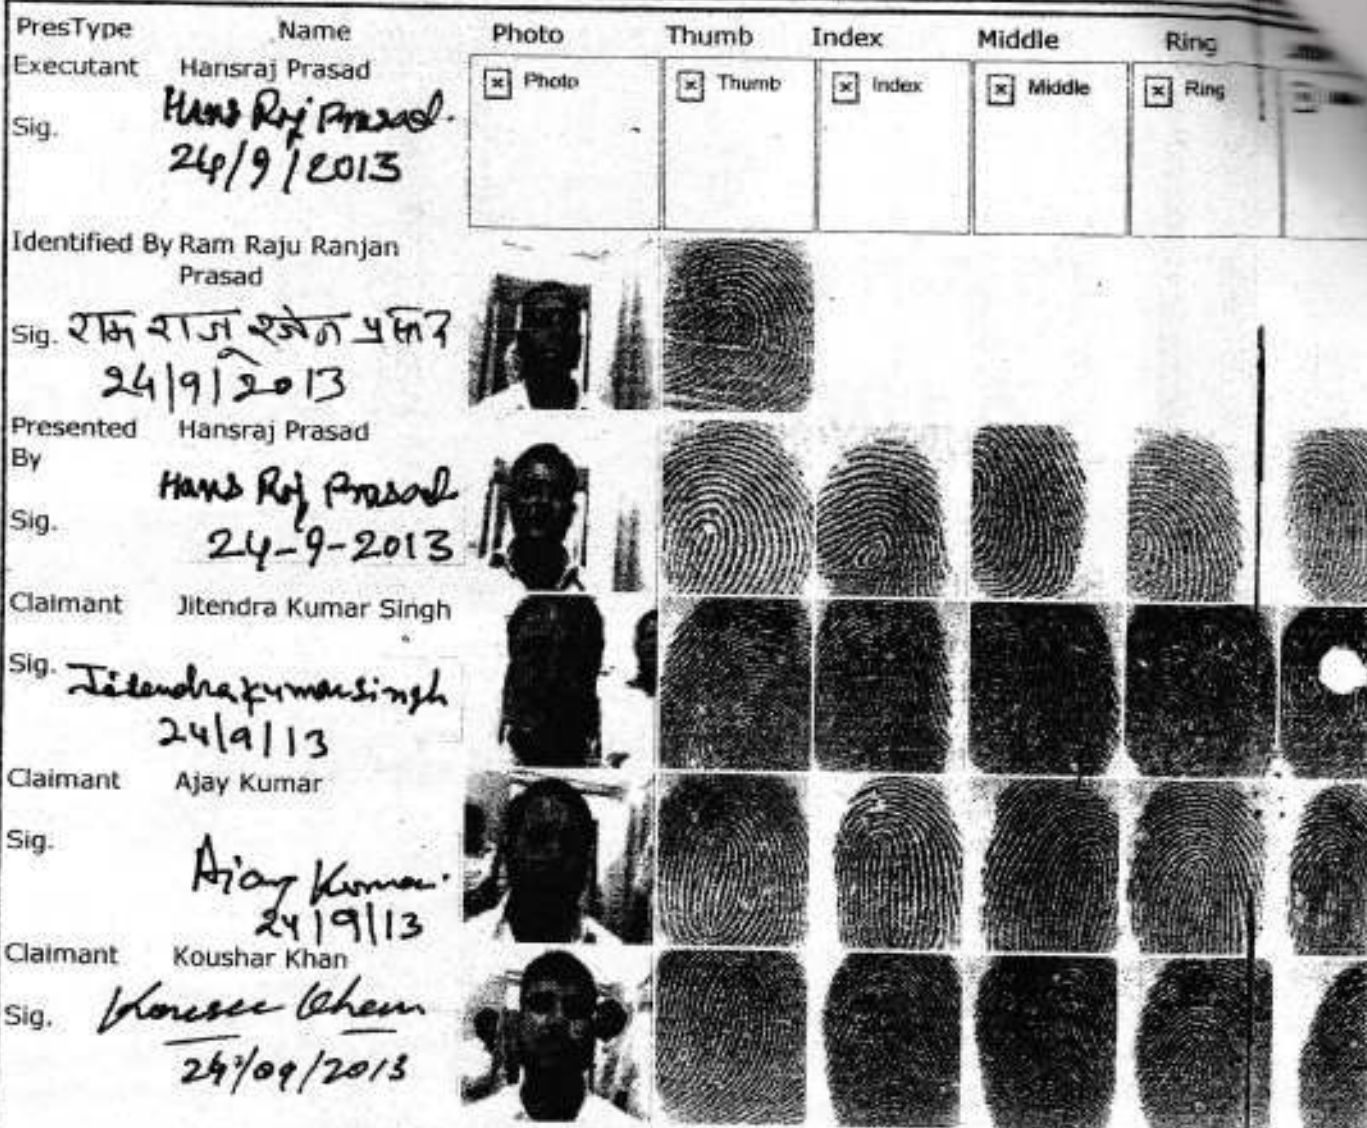 PresType Name Photo Thumb Index Middle Ring
Executant Hansraj Prasad
Photo Thumb Index Middle Ring
Sig. Hans Raj Prasad.
24/9/2013
Identified By Ram Raju Ranjan
Prasad
Sig. राम राज रंजन प्रसाद
24/9/2013
Presented Hansraj Prasad
By
Hans Raj Prasad
Sig.
24-9-2013
Claimant Jitendra Kumar Singh
Sig. Jitendra kumar singh
24/9/13
Claimant Ajay Kumar
Sig.
Ajay Kumar
24/9/13
Claimant Koushar Khan
Sig. Khan
24/09/2013